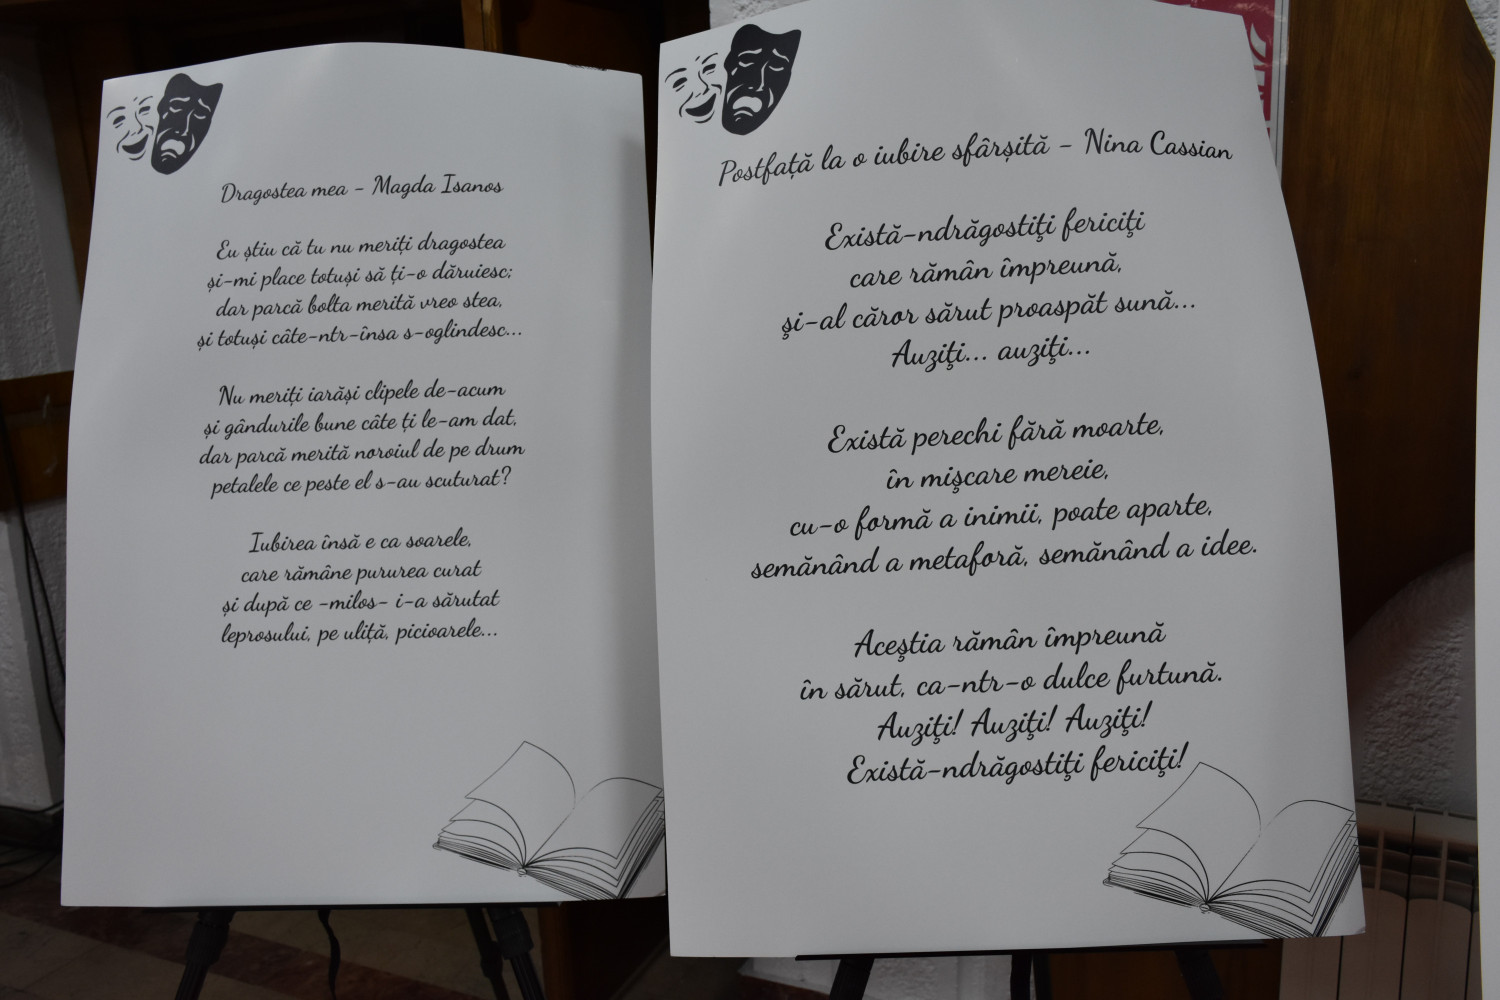 Dragostea mea - Magda Isanos
Eu știu că tu nu meriți dragostea
și-mi place totuși să ți-o dăruiesc;
dar parcă bolta merită vreo stea,
și totuși câte-ntr-însa s-oglindesc...
Nu meriți iarăși clipele de-acum
și gândurile bune câte ți le-am dat,
dar parcă merită noroiul de pe drum
petalele ce peste el s-au scuturat?
Iubirea însă e ca soarele,
care rămâne pururea curat
și după ce -milos- i-a sărutat
leprosului, pe uliță, picioarele...
Postfață la o iubire sfârșită - Nina Cassian
Există-ndrăgostiţi fericiţi
care rămân împreună,
şi-al căror sărut proaspăt sună...
Auziţi... auziţi...
Există perechi fără moarte,
în mişcare mereie,
cu-o formă a inimii, poate aparte,
semănând a metaforă, semănând a idee.
Aceştia rămân împreună
în sărut, ca-ntr-o dulce furtună.
Auziţi! Auziţi! Auziţi!
Există-ndrăgostiţi fericiţi!